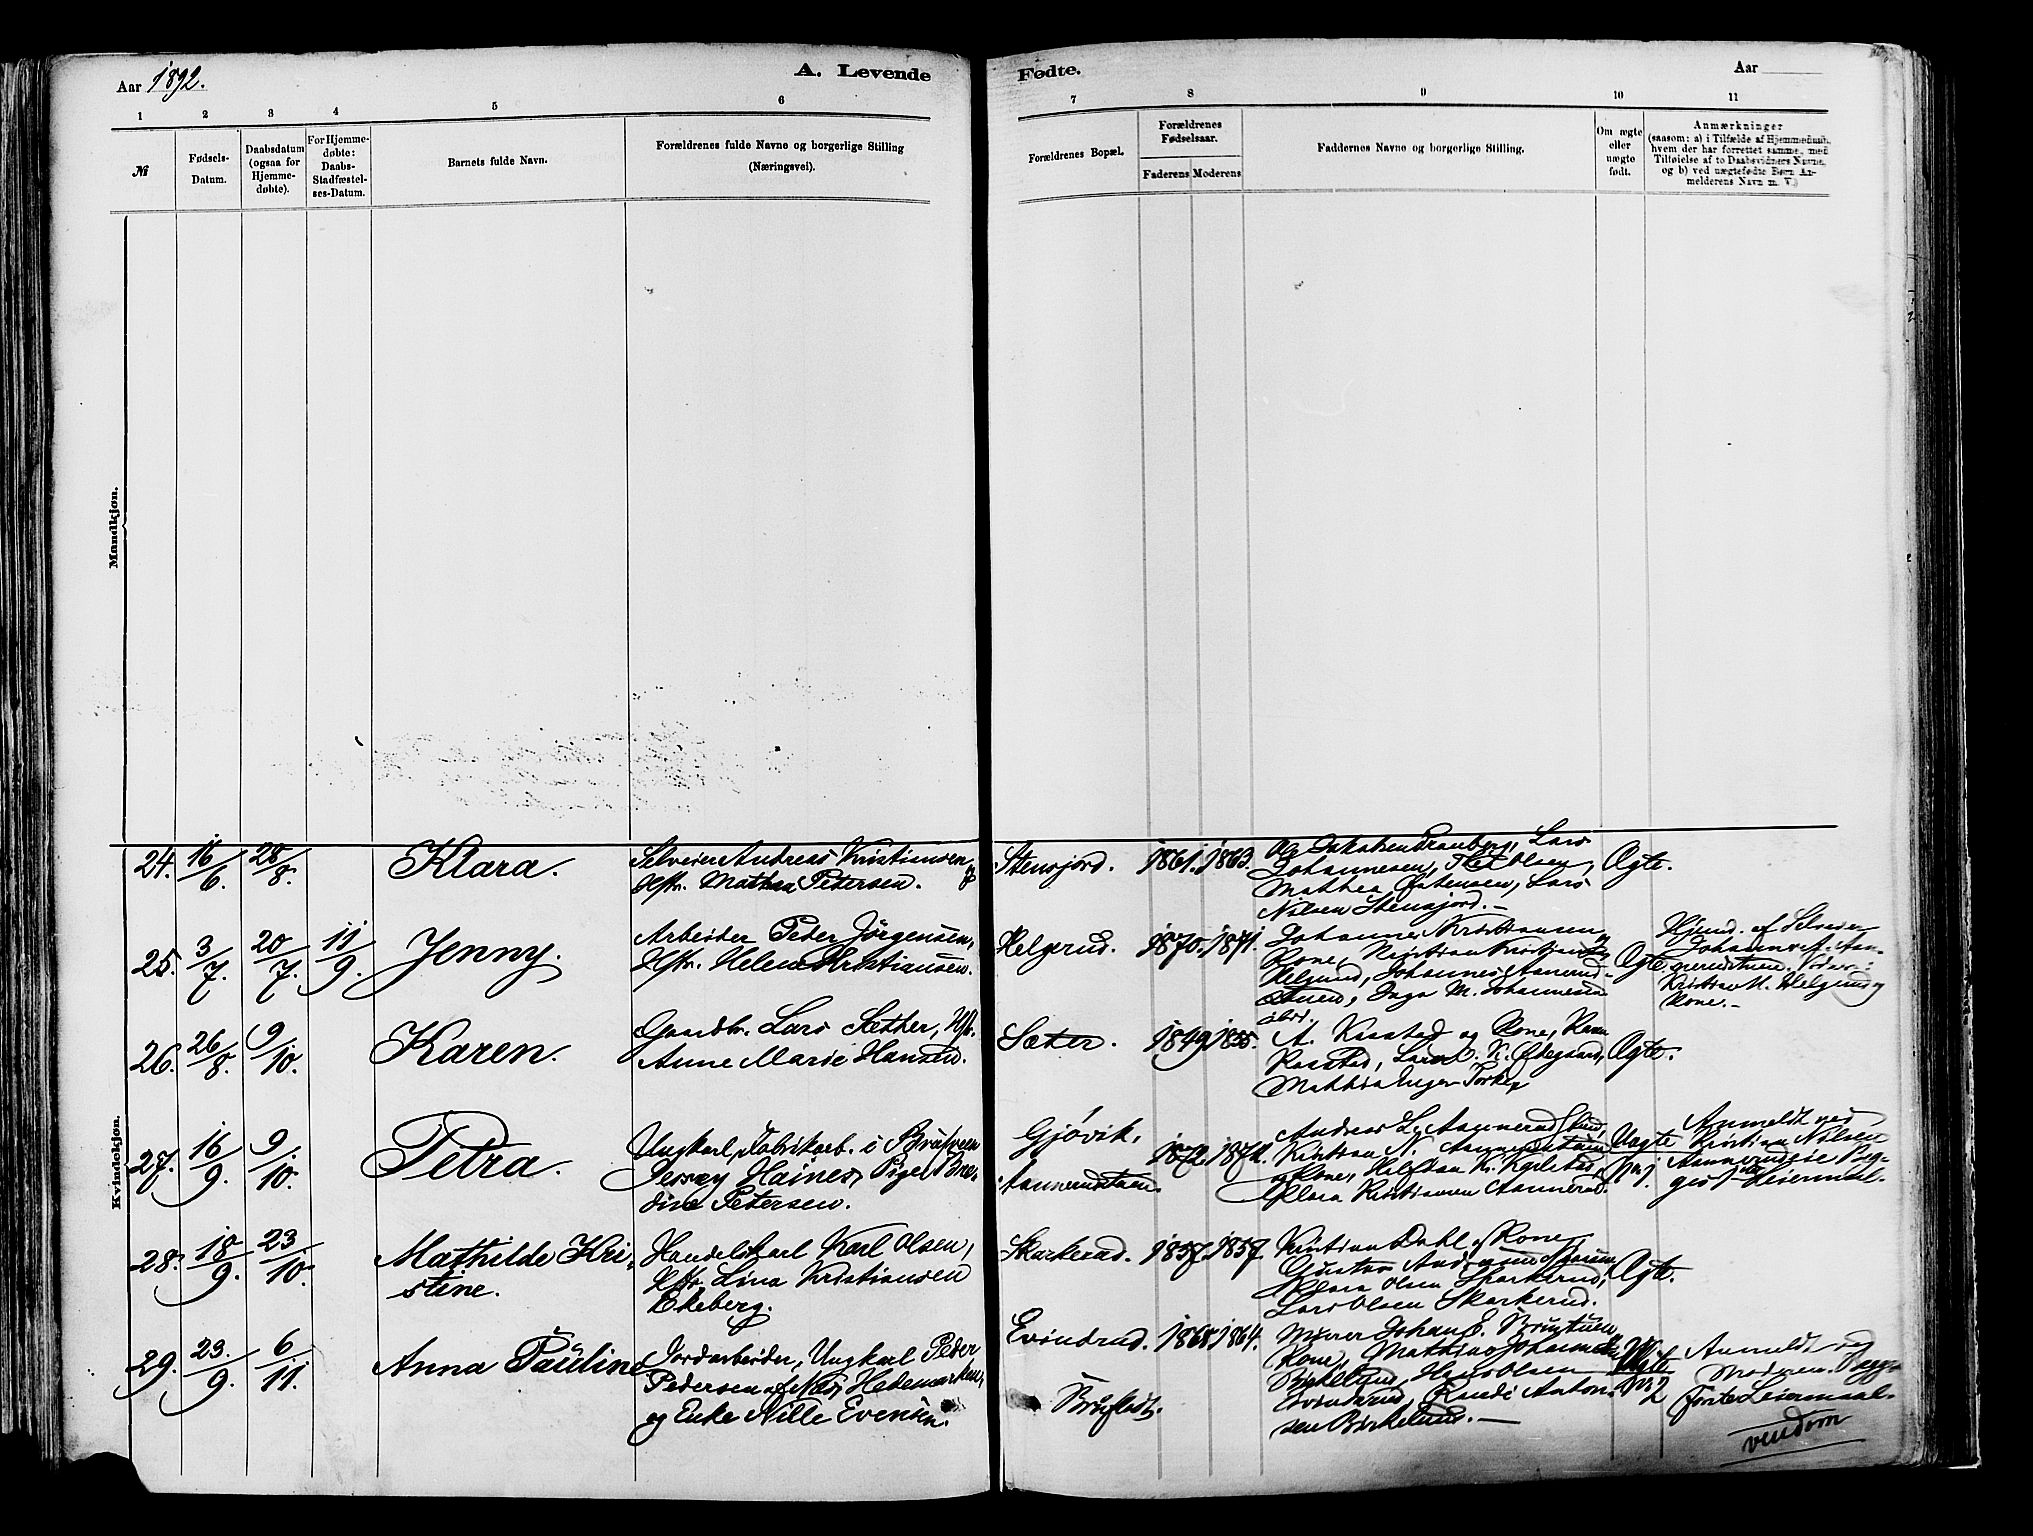 Aar 1892.
A. Levende
Fødte.
Aar
1 2 3 4 5 6 7 8 9 10 11
№
Fødsels-
Datum.
Daabsdatum
(ogsaa for
Hjemme-
døbte).
For Hjemme-
døbte:
Daabs-
Stadfæstel-
ses-Datum.
Barnets fulde Navn.
Forældrenes fulde Navne og borgerlige Stilling
(Næringsvei).
Forældrenes Bopæl.
Forældrenes
Fødselsaar.
Faderens Moderens
Faddernes Navne og borgerlige Stilling.
Om ægte
eller
uægte
født.
Anmærkninger
(saasom: a) i Tilfælde af Hjemmedaab,
hvem der har forrettet samme, med
Tilføielse af to Daabsvidners Navne,
og b) ved uægtefødte Børn An-
melderens Navn m. V.)
Mandkjøn.
Kvindekjøn.
24. 16/6. 28/8. Klara.
Selveier Andreas Kristiansen
Hstr. Mathea Petersen.
Stensjord. 1861. 1863.
Johannesen, Olsen,
Mathea Lars
Nilsen Stensjord.
Ægte.
25. 3/7. 20/7. 11/9. Jenny.
Arbeider Peder Jörgensen,
Hstr. Helene Kristiansen.
Helgerud. 1870. 1871.
Johannes Kristiansen
Kone, Kristian Kristiansen
Helgerud, Johannes
Inga M. Johannesen
Ægte.
Hjemd. af Selveier
Kristian M. Helgerud og
Kone.
26. 26/8. 9/10. Karen.
Gaardbr. Lars Sæther, Hstr.
Anne Marie Hansen.
Sæter. 1849. 1855.
A. Kasstad og Kone, Karen
Kasstad, Lars K. Ødegaard,
Mathea Enger
Ægte.
27. 16/9. 9/10. Petra.
Ungkarl, Fabrikarb. i
Haines, Pige
Petersen.
Gjøvik,
Aannerudstuen.
1872. 1872.
Andreas L. Aannerud
Kristian N. Aannerudstuen
Kone,
Klara Kristiansen Aannerud.
Uægte
No 1
Anmeldt ved
Kristian Nilsen
Leiermaal.
28. 18/9. 23/10. Mathilde Kri-
stine.
Handelskarl Karl Olsen,
Hstr. Lina Kristiansen
Ekeberg.
Skarkerud. 1857. 1857
Kristian Dahl Kone,
Gustav
Klara Olsen Skarkerud,
Lars Olsen Skarkerud.
Ægte.
29. 23./9. 6/11. Anna Pauline
Jordarbeider, Ungkarl Peder
Pedersen af Næs, Hedemarken,
og Enke Nille Evensen.
Evindrud.
1868. 1864.
Murer Johan E.
Kone, Mathias Johannes
Hans Olsen
Evindrud, Randi Anton-
sen Birkelund.
Uægte
No 2
Anmeldt
Moderen. Begge
første Leiermaal.